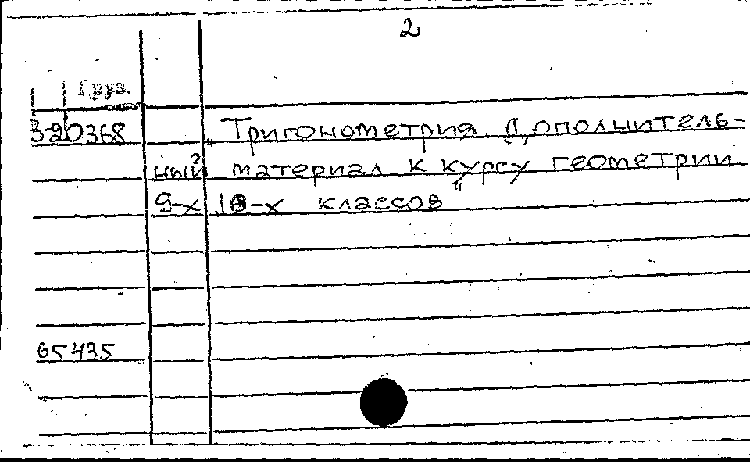 2
Груз.
320368 „Тригонометрия. Дополнитель-
ный материал к курсу геометрии
9-х 10-х классов"
65435